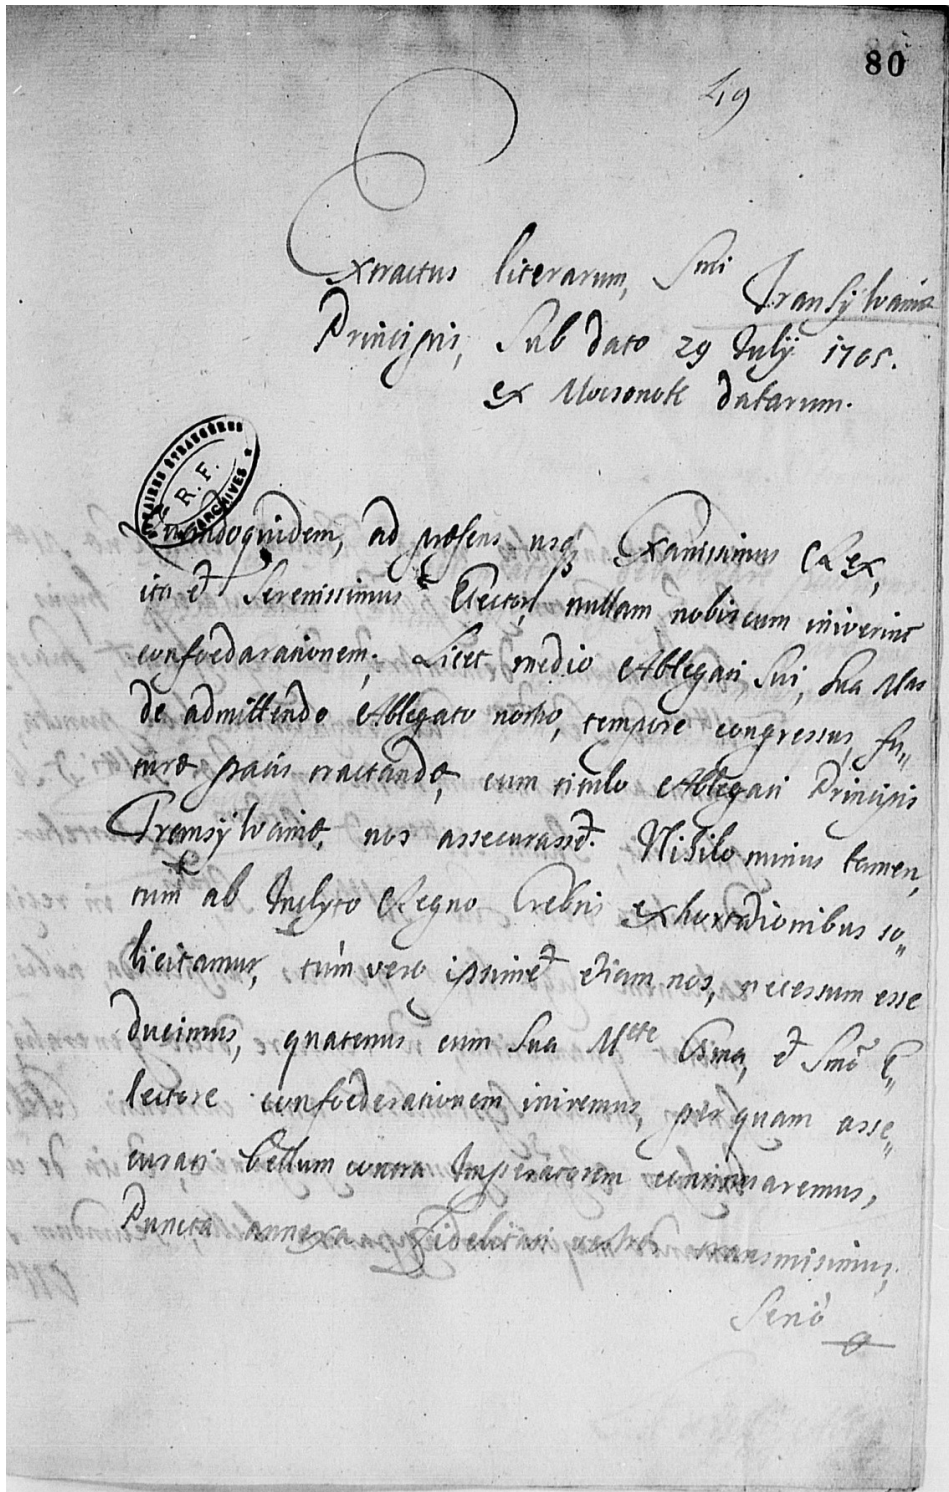 80
49
Extractus literarum, Smi Transÿlvaniæ
Principis, Sub dato 29 Julÿ 1705.
ex Mocsonok datarum.
AFFAIRES ETRANGÈRES
R.F.
ARCHIVES
Quandoquidem, ad præsens usq; Xanissimus Rex,
ita et Serenissimus Elector, nullam nobiscum iniverint
confoedarationem; Licet medio Ablegati Sui, Sua Mas
de admittendo Ablegato nostro, tempore congressus, fu„
turæ pacis tractandæ, cum titulo Ablegati Principis
Transÿlvaniæ, nos assecurasset. Nihilo minus tamen,
tum ab Inclyto Regno Crebris exhortationibus so„
licitamur, tùm vero ipsimet etiam nos, necessum esse
ducimus, quatenus cum Sua Mtte Xsma, et Smô E„
lectore confoederationem iniremus, per quam asse„
curati bellum contra Imperatorem continuaremus,
Puncta annexa Fidelitati vestræ transmisimus,
Seriô